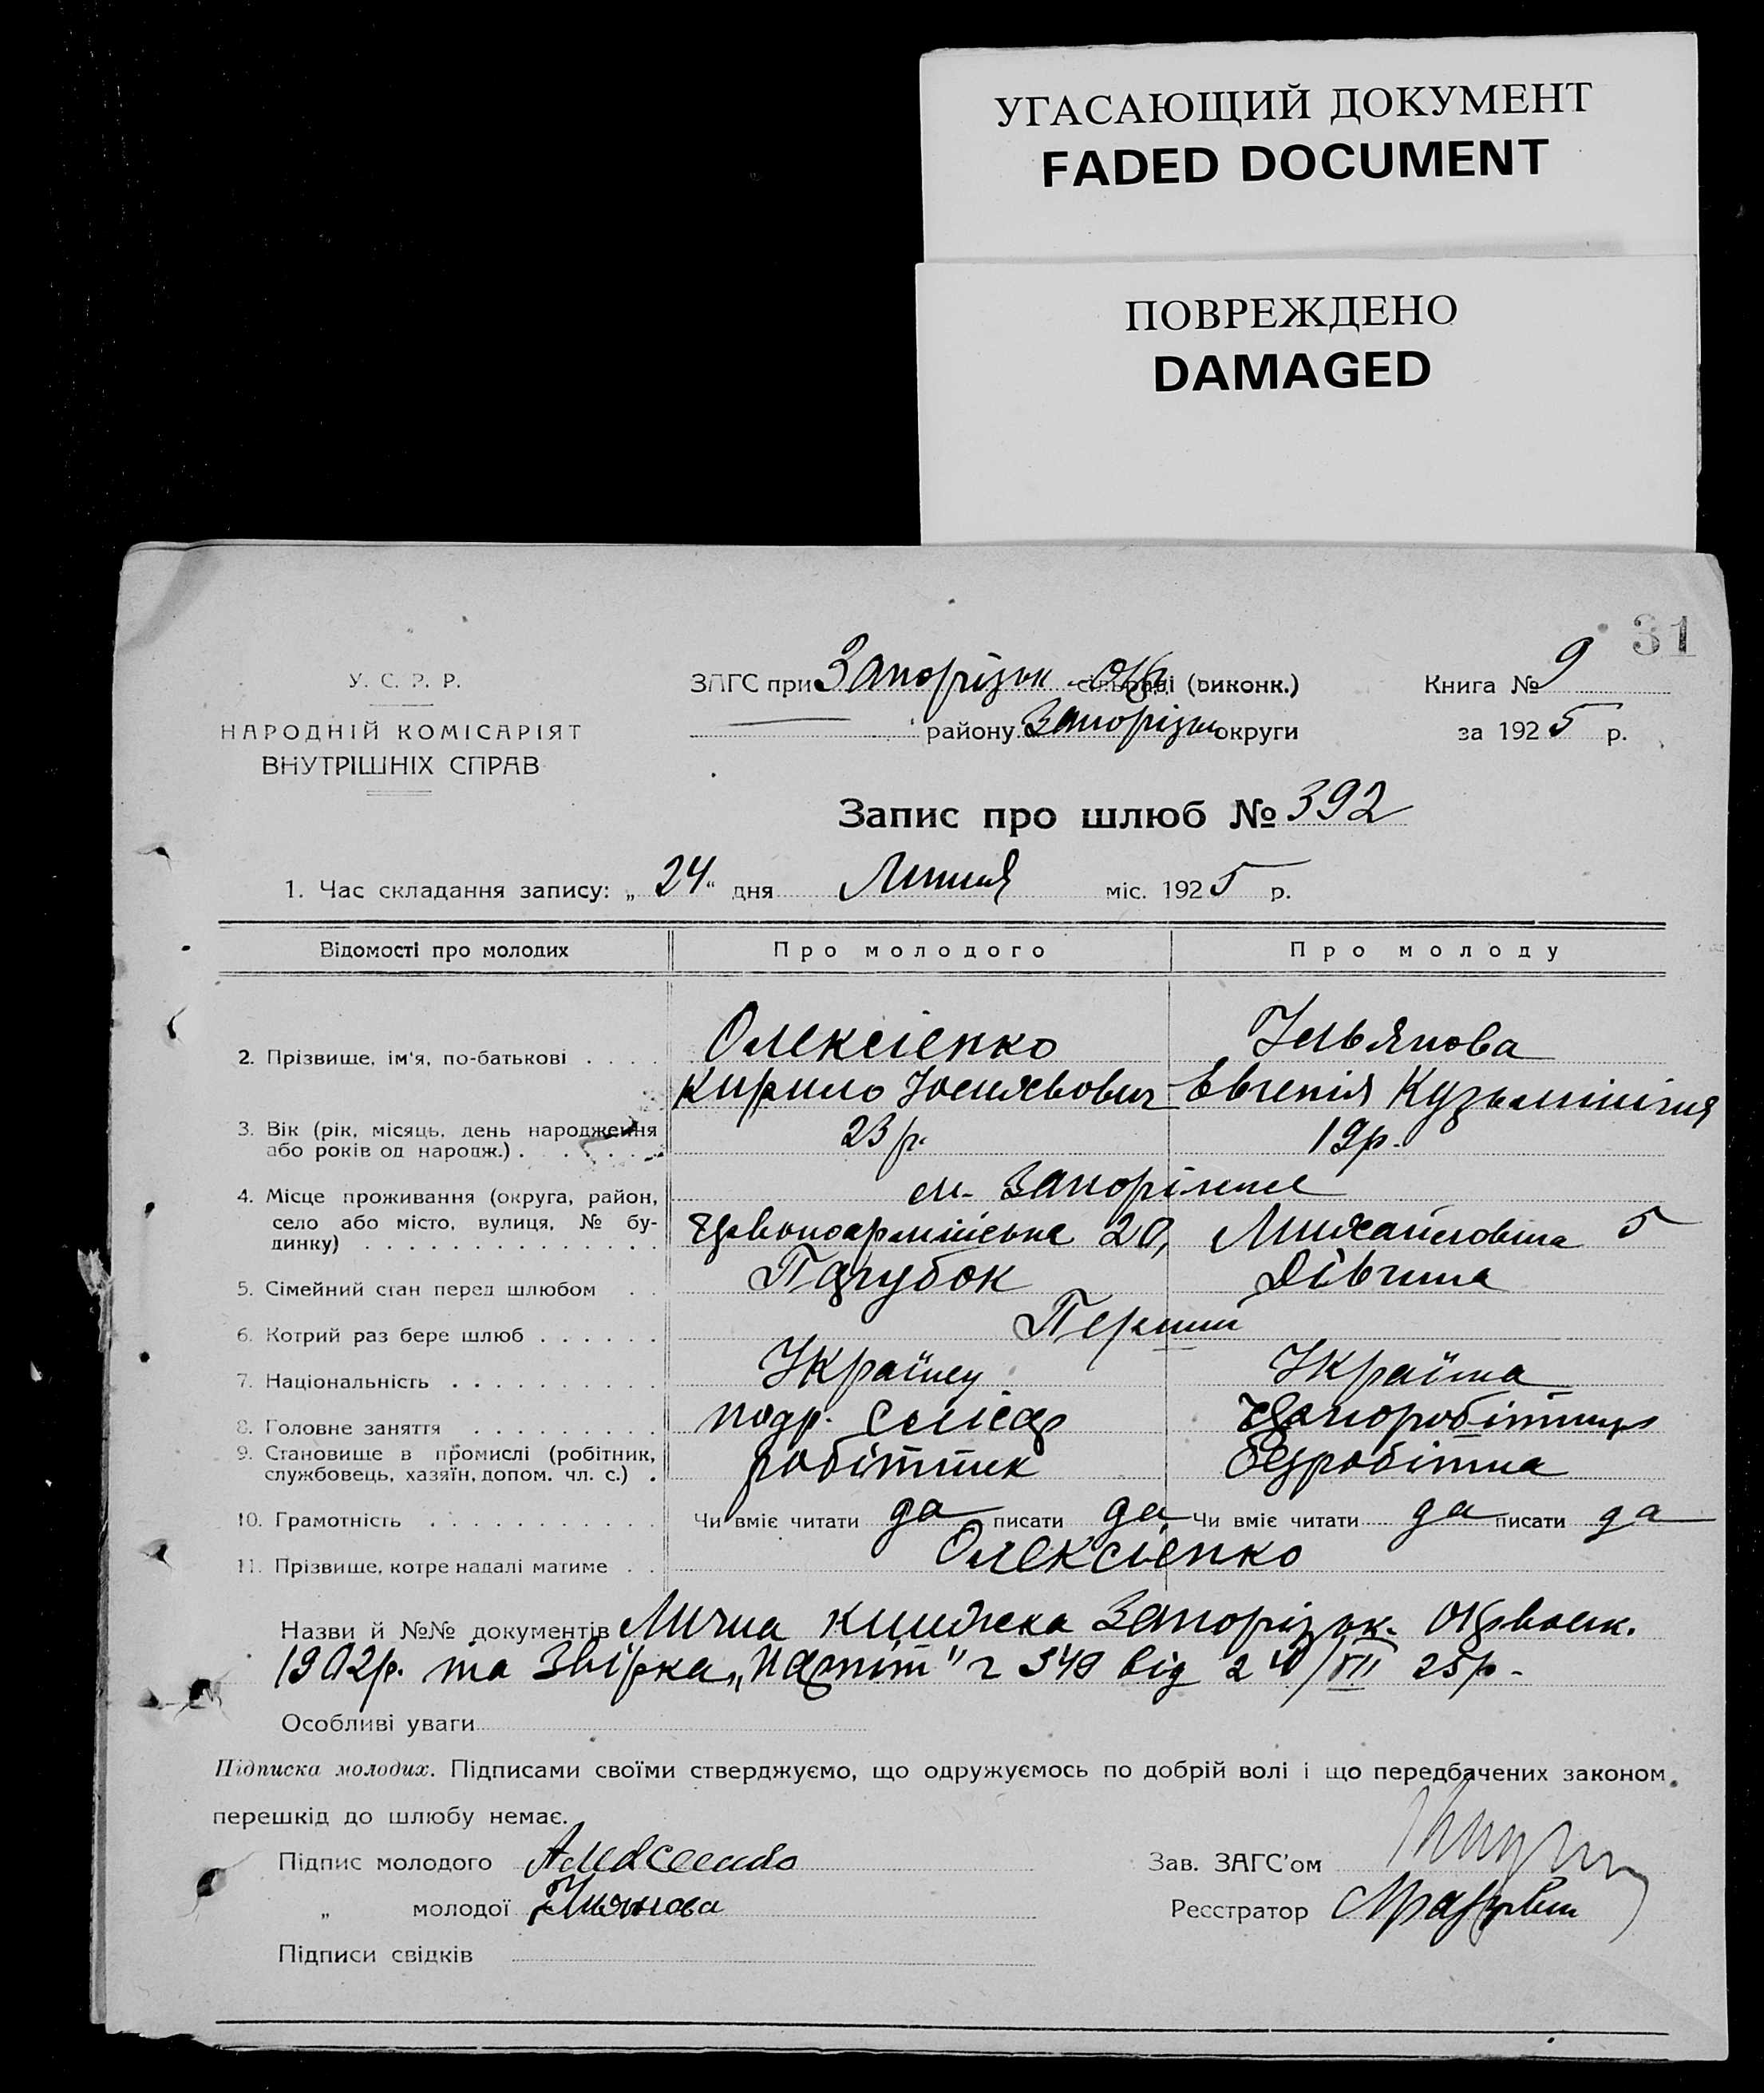 УГАСАЮЩИЙ ДОКУМЕНТ
FADED DOCUMENT
ПОВРЕЖДЕНО
DAMAGED
31
У. С. Р. Р.
НАРОДНІЙ КОМІСАРІЯТ
ВНУТРІШНІХ СПРАВ
ЗАГС при Запорізьк. Окр. сільраді (виконк.)
району Запорізьк округи
Книга № 9
за 1925 р.
Запис про шлюб № 392
1. Час складання запису: „24“ дня Липня міс. 1925 р.
Відомості про молодих Про молодого Про молоду
2. Прізвище, ім'я, по-батькові . . . . Олексієнко Ульянова
Кирило Юсих Евгенія Кузьмінічна
3. Вік (рік, місяць, день народження або років од народж.) . . . . . 23 р. 19 р.
4. Місце проживання (округа, район, село або місто, вулиця, № будинку) . . . . м. Запоріжже
Червоноармійська 20, Михайловська 5
5. Сімейний стан перед шлюбом . . Парубок Дівчина
6. Котрий раз бере шлюб . . . . . . Перший
7. Національність . . . . . . . . . . Українец Українка
8. Головне заняття . . . . . . . . . подр. Слюсар Чорноробітниця
9. Становище в промислі (робітник, службовець, хазяїн, допом. чл. с.) . робітник безробітна
10. Грамотність . . . . . . . . . . . Чи вміє читати да писати да Чи вміє читати да писати да
11. Прізвище, котре надалі матиме . . Олексієнко
Назви й №№ документів Лична книжка Запорізьк. Окрвоенк.
1902р. та Звірка „ " ч 549 від 24/VII 25р-
Особливі уваги
Підписка молодих. Підписами своїми стверджуємо, що одружуємось по добрій волі і що передбачених законом
перешкід до шлюбу немає.
Підпис молодого Зав. ЗАГС'ом
„ молодої Ульянова Реєстратор
Підписи свідків